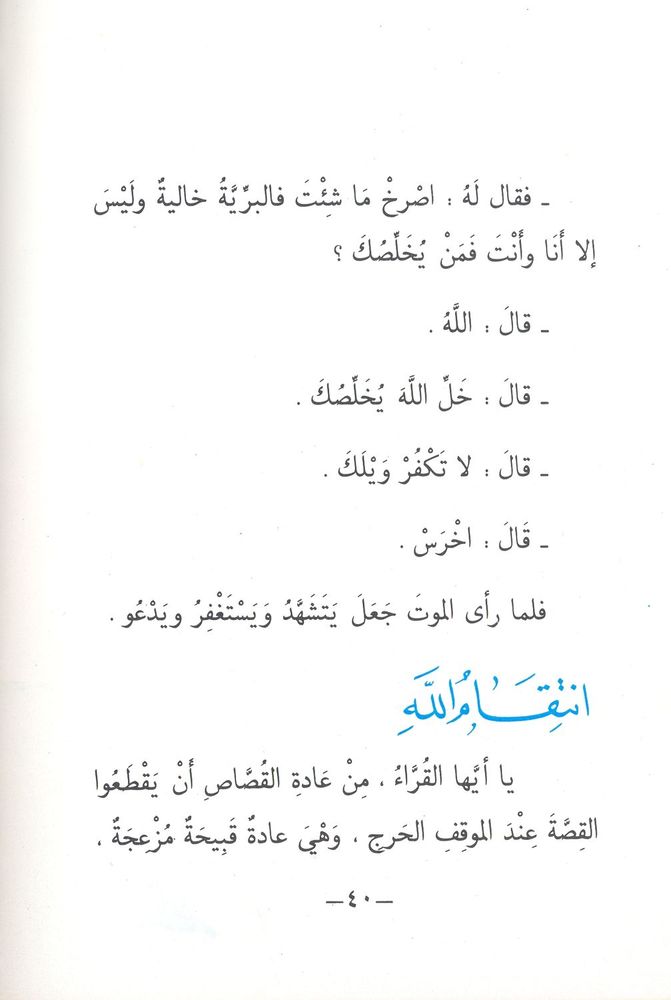 ـ فقال لَهُ : اصْرخْ مَا شِئْتَ فالبرِّيَّةُ خاليةٌ ولَيْسَ
إلا أَنَا وأَنْتَ فَمَنْ يُخَلِّصُكَ ؟
ـ قالَ : اللَّهُ .
ـ قالَ : خَلِّ اللَّهَ يُخَلِّصُكَ .
ـ قالَ : لا تَكْفُرْ وَيْلَكَ .
ـ قَالَ : اخْرَسْ .
فلما رأى الموتَ جَعَلَ يَتَشَهَّدُ وَيَسْتَغْفِرُ ويَدْعُو .
انتِقَامُ اللَّهِ
يا أيَّها القُرَّاءُ ، مِنْ عَادةِ القُصَّاصِ أَنْ يَقْطَعُوا
القِصَّةَ عِنْدَ الموقِفِ الحَرجِ ، وَهْيَ عادةٌ قَبِيحَةٌ مُزْعِجَةٌ ،
— ٤٠ —